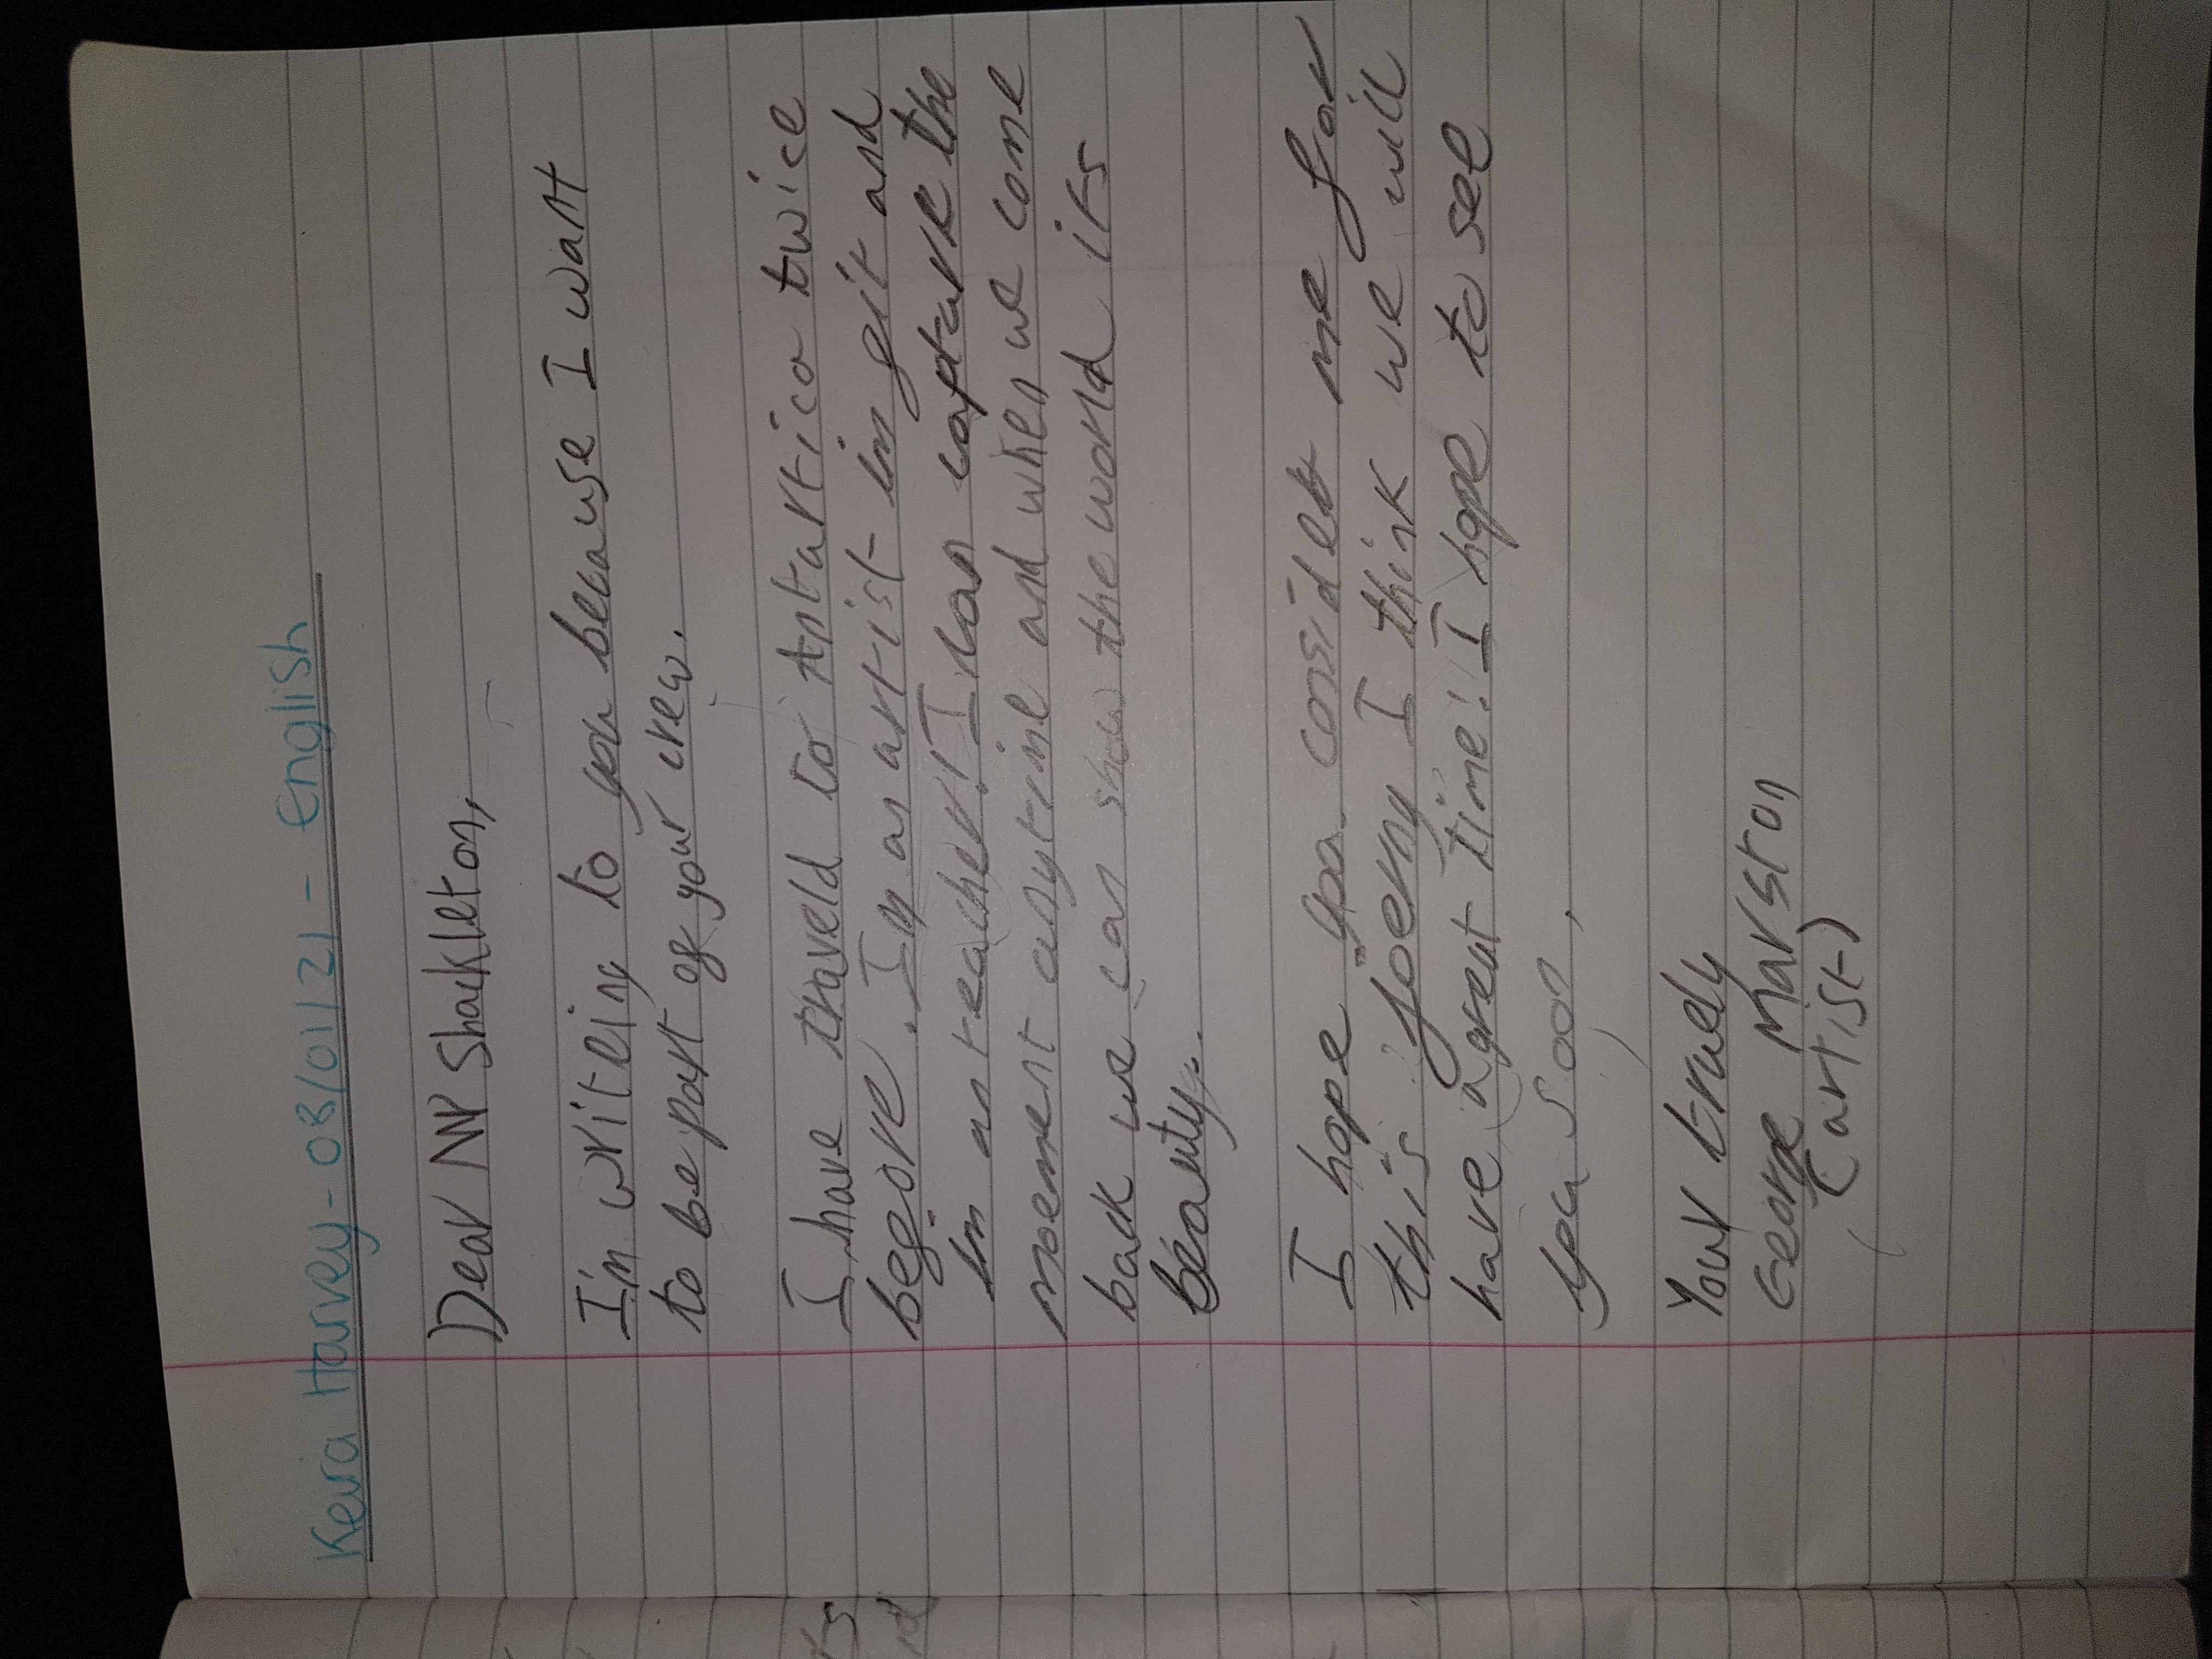 Keira Harvey - 08/01/21 - English
Dear Mr Shackleton,
I'm writeing to you because I want
to be part of your crew.
I have traveld to Antartica twice
before. I'm an artist im git and
Im an teacher! I can capture the
moement anytime and when we come
back we can show the world its
beauty.
I hope you consider me for
this joerny I think we will
have a great time! I hope to see
you soon,
Your truely
George Marston
(artist)